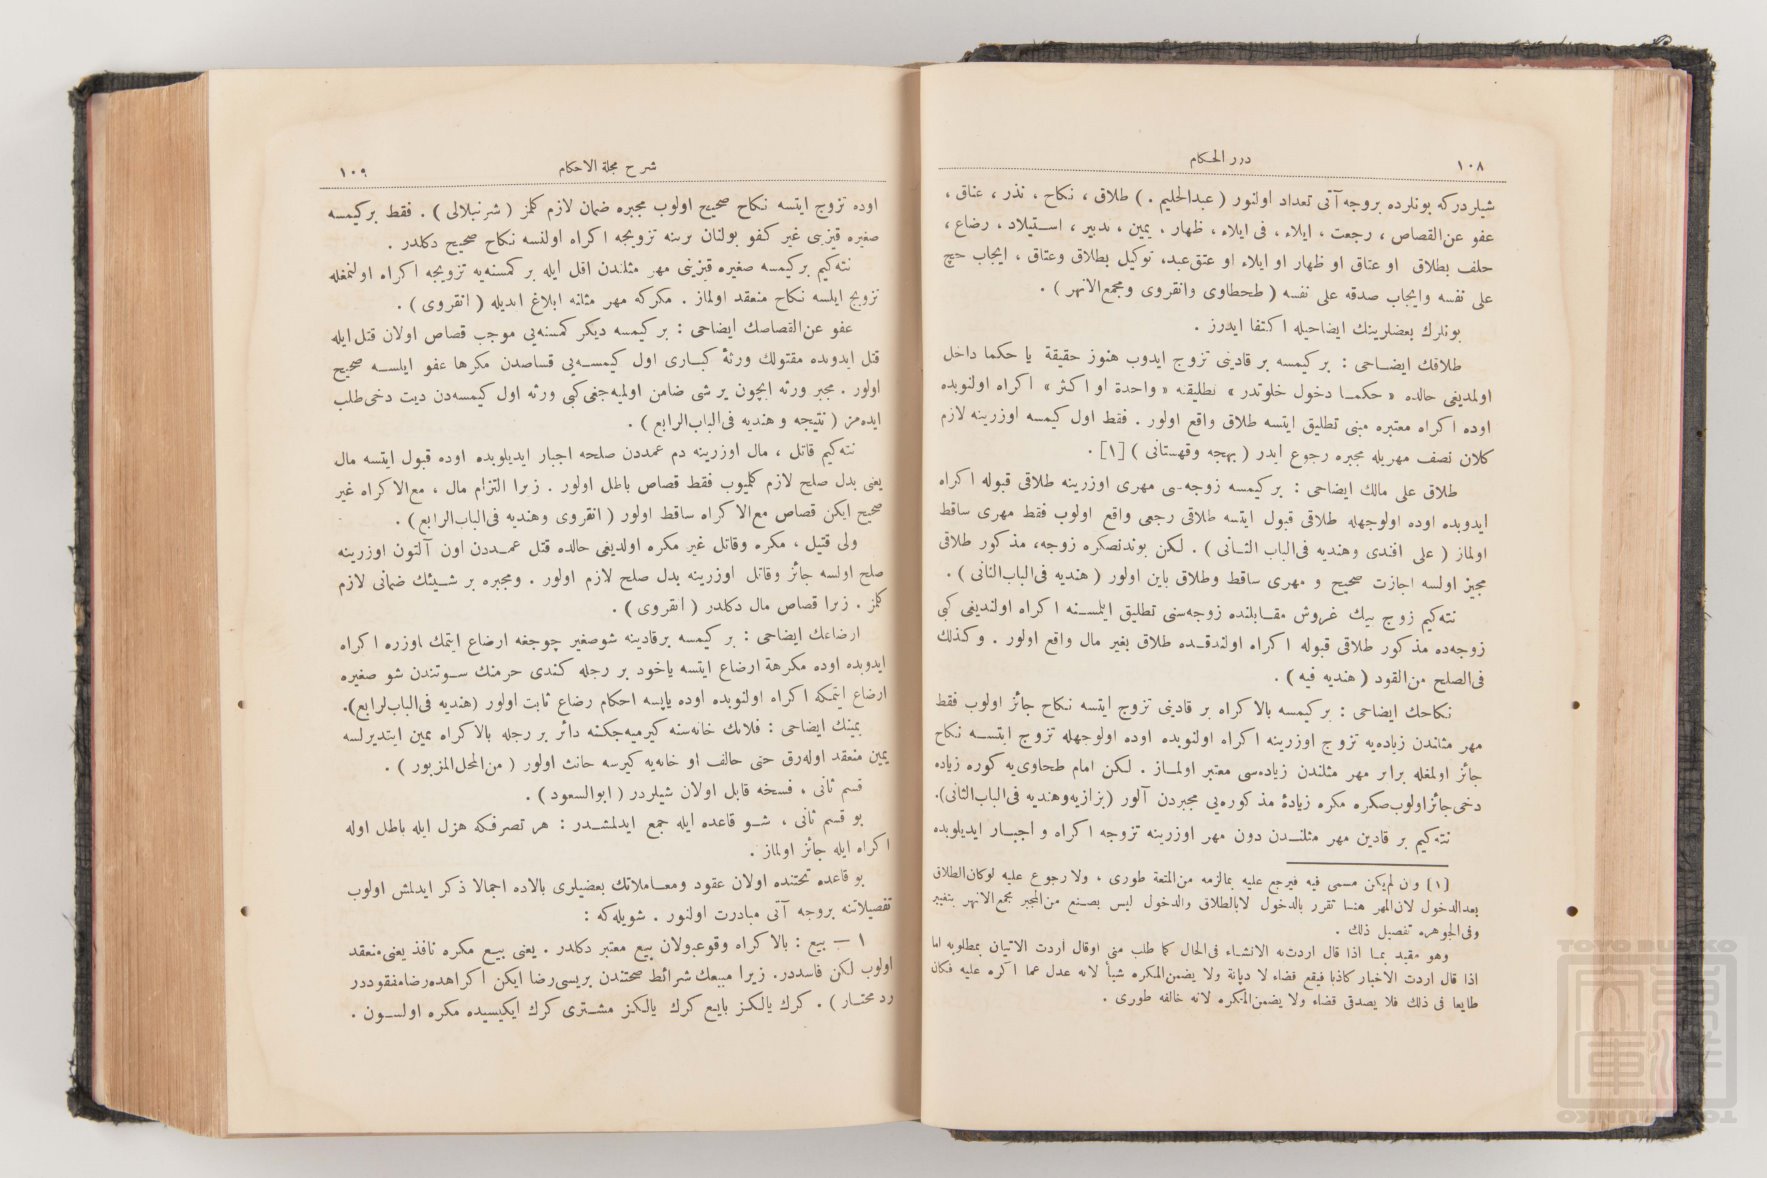 ١٠٨
درر الحكام
شيلردركه بونلرده بروجه آتى تعداد اولنور ( عبدالحليم . ) طلاق ، نكاح ، نذر ، عتاق ،
عفو عن‌القصاص ، رجعت ، ايلاء ، فى ايلاء ، ظهار . يمين ، تدبير ، استيلاد ، رضاع ،
حلف بطلاق او عتاق او ظهار او ايلاء او عتق عبد، توكيل بطلاق وعتاق ، ايجاب حج
على نفسه وايجاب صدقه على نفسه ( طحطاوى وانقروى ومجمع‌الانهر ) .
بونلرك بعضلرينك ايضاحيله اكتفا ايدرز .
طلاقك ايضاحى : بر كيمسه بر قادينى تزوج ايدوب هنوز حقيقة يا حكما داخل
اولمديغى حالده « حكما دخول خلوتدر » تطليقنه « واحدة او اكثر » اكراه اولنوبده
اوده اكراه معتبره مبنى تطليق ايتسه طلاق واقع اولور . فقط اول كيمسه اوزرينه لازم
كلان نصف مهريله مجبره رجوع ايدر ( بهجه وقهستانى ) [١] .
طلاق على مالك ايضاحى : بر كيمسه زوجه‌سى مهرى اوزرينه طلاقى قبوله اكراه
ايدوبده اوده اولوجهله طلاقى قبول ايتسه طلاقى رجعى واقع اولوب فقط مهرى ساقط
اولماز ( على افندى وهنديه فى‌الباب الثانى ) . لكن بوندنصكره زوجه، مذكور طلاقى
مجيز اولسه اجازت صحيح و مهرى ساقط وطلاق باين اولور ( هنديه فى‌الباب‌الثانى ) .
نته‌كيم زوج بيك غروش مقابلنده زوجه‌سنى تطليق ايلمسنه اكراه اولنديغى كبى
زوجه‌ده مذكور طلاقى قبوله اكراه اولندقده طلاق بغير مال واقع اولور . وكذلك
فى‌الصلح من‌القود ( هنديه فيه ) .
نكاحك ايضاحى : بر كيمسه بالاكراه بر قادينى تزوج ايتسه نكاح جائز اولوب فقط
مهر مثلندن زياده‌يه تزوج اوزرينه اكراه اولنوبده اوده اولوجهله تزوج ايتسه نكاح
جائز اولمغله برابر مهر مثلندن زياده‌سى معتبر اولماز . لكن امام طحاوى‌يه كوره زياده
دخى جائز اولوب صكره مكره زيادهٔ مذكوره‌يى مجبردن آلور (بزازيه‌وهنديه فى‌الباب‌الثانى).
نته‌كيم بر قادين مهر مثلندن دون مهر اوزرينه تزوجه اكراه و اجبار ايديلوبده
[١] وان لم‌يكن مسمى فيه فيرجع عليه بمالزمه من‌المتعة طورى ، ولا رجوع عليه لوكان‌الطلاق
بعدالدخول لان‌المهر هنا تقرر بالدخول لابالطلاق والدخول ليس بصنع من‌المجبر مجمع‌الانهر بتغيير
وفى‌الجوهره تفصيل ذلك .
وهو مقيد بما اذا قال اردت‌به الانشاء فى‌الحال كما طلب منى اوقال اردت الاتيان بمطلوبه اما
اذا قال اردت الاخبار كاذبا فيقع قضاء لا ديانة ولا يضمن‌المكره شيأ لانه عدل عما اكره عليه فكان
طايعا فى ذلك فلا يصدق قضاء ولا يضمن‌المكره لانه خالفه طورى .
شرح مجلة الاحكام
١٠٩
اوده تزوج ايتسه نكاح صحيح اولوب مجبره ضمان لازم كلمز ( شرنبلالى ) . فقط بركيمسه
صغيره قيزينى غير كفو بولنان برينه تزويجه اكراه اولنسه نكاح صحيح دكلدر .
نته‌كيم بركيمسه صغيره قيزينى مهر مثلندن اقل ايله بر كمسنه‌يه تزويجه اكراه اولنمغله
تزويج ايلسه نكاح منعقد اولماز . مكركه مهر مثلنه ابلاغ ايديله ( انقروى ) .
عفو عن‌القصاصك ايضاحى : بر كيمسه ديكر كمسنه‌يى موجب قصاص اولان قتل ايله
قتل ايدوبده مقتولك ورثهٔ كبارى اول كيمسه‌يى قصاصدن مكرها عفو ايلسه صحيح
اولور . مجبر ورثه ايچون بر شى ضامن اولميه‌جغى كبى ورثه اول كيمسه‌دن ديت دخى طلب
ايده‌مز ( نتيجه و هنديه فى‌الباب‌الرابع ) .
نته‌كيم قاتل ، مال اوزرينه دم عمددن صلحه اجبار ايديلوبده اوده قبول ايتسه مال
يعنى بدل صلح لازم كلميوب فقط قصاص باطل اولور . زيرا التزام مال ، مع‌الاكراه غير
صحيح ايكن قصاص مع‌الاكراه ساقط اولور ( انقروى وهنديه فى‌الباب‌الرابع ) .
ولى قتيل ، مكره وقاتل غير مكره اولديغى حالده قتل عمددن اون آلتون اوزرينه
صلح اولسه جائز وقاتل اوزرينه بدل صلح لازم اولور . ومجبره بر شيئك ضمانى لازم
كلمز . زيرا قصاص مال دكلدر ( انقروى ) .
ارضاعك ايضاحى : بر كيمسه برقادينه شوصغير چوجغه ارضاع ايتمك اوزره اكراه
ايدوبده اوده مكرهة ارضاع ايتسه ياخود بر رجله كندى حرمنك سوتندن شو صغيره
ارضاع ايتمكه اكراه اولنوبده اوده ياپسه احكام رضاع ثابت اولور (هنديه فى‌الباب‌لرابع).
يمينك ايضاحى : فلانك خانه‌سنه كيرميه‌جكنه دائر بر رجله بالاكراه يمين ايتديرلسه
يمين منعقد اوله‌رق حتى حالف او خانه‌يه كيرسه حانث اولور ( من‌المحل‌المزبور ) .
قسم ثانى ، فسخه قابل اولان شيلردر ( ابوالسعود ) .
بو قسم ثانى ، شو قاعده ايله جمع ايدلمشدر : هر تصرفكه هزل ايله باطل اوله
اكراه ايله جائز اولماز .
بو قاعده تحتنده اولان عقود ومعاملاتك بعضيلرى بالاده اجمالا ذكر ايدلمش اولوب
تفصيلاتنه بروجه آتى مبادرت اولنور . شويله‌كه :
١ — بيع : بالاكراه وقوعبولان بيع معتبر دكلدر . يعنى بيع مكره نافذ يعنى منعقد
اولوب لكن فاسددر. زيرا مبيعك شرائط صحتندن بريسى رضا ايكن اكراهده رضامفقوددر
رد محتار ) . كرك يالكز بايع كرك يالكز مشترى كرك ايكيسيده مكره اولسون .
TOYO BUNKO